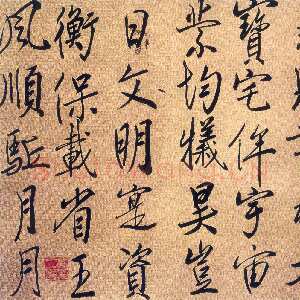 寶宅侔宇宙
縈均犧昊豈
日文明寔資
衡保載省王
風順駈月月